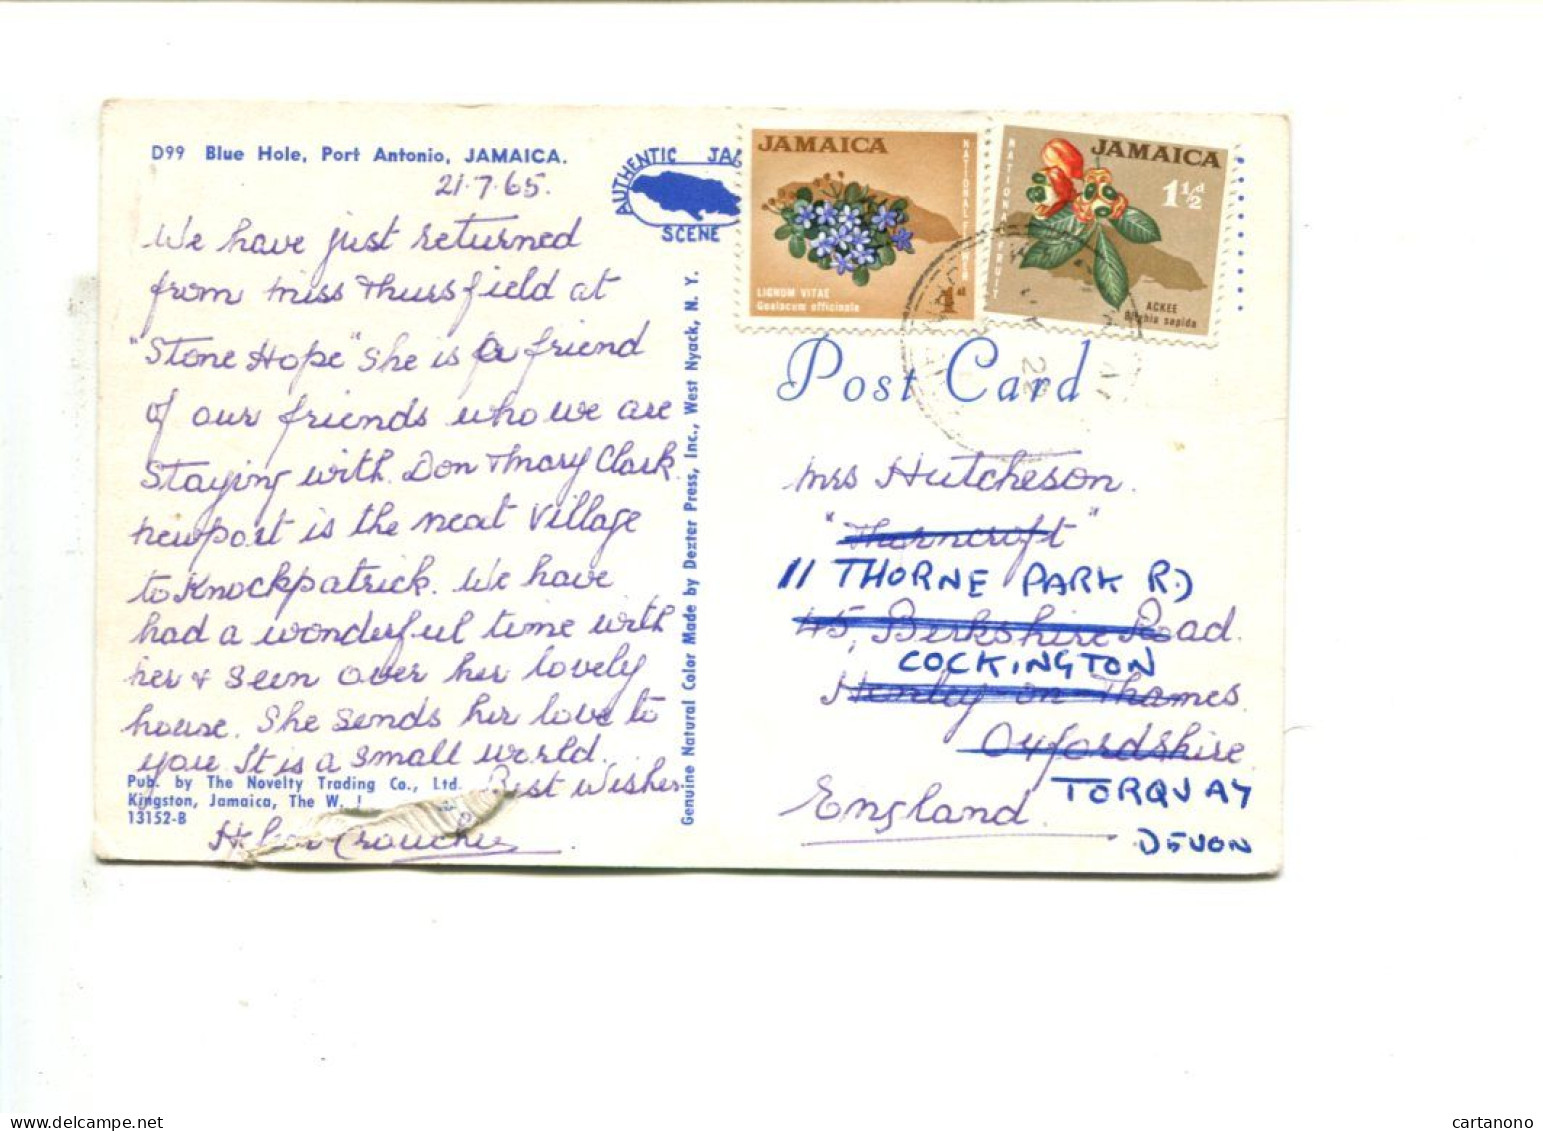 D99 Blue Hole, Port Antonio, JAMAICA.
21.7.65.
We have just returned
from Miss Thursfield at
"Stone Hope" She is a friend
of our friends who we are
Staying with. Don & Mary Clark.
Newport is the next Village
to Knockpatrick. We have
had a wonderful time with
her & seen over her lovely
house. She sends her love to
you. It is a small world.
Best Wishes.
Pub. by The Novelty Trading Co., Ltd.
Kingston, Jamaica, The W. I
13152-B
Croucher
AUTHENTIC JA
SCENE
Genuine Natural Color Made by Dexter Press, Inc., West Nyack, N. Y.
JAMAICA
NATIONAL FLOWER
LIGNUM VITAE
Guaiacum officinale
1d
JAMAICA
1½d
NATIONAL FRUIT
ACKEE
Blighia sapida
22
Post Card
Mrs Hutcheson.
"Thorncroft"
11 THORNE PARK RD
45, Berkshire Road.
COCKINGTON
Henley on Thames.
Oxfordshire
TORQUAY
England.
DEVON
cartanono